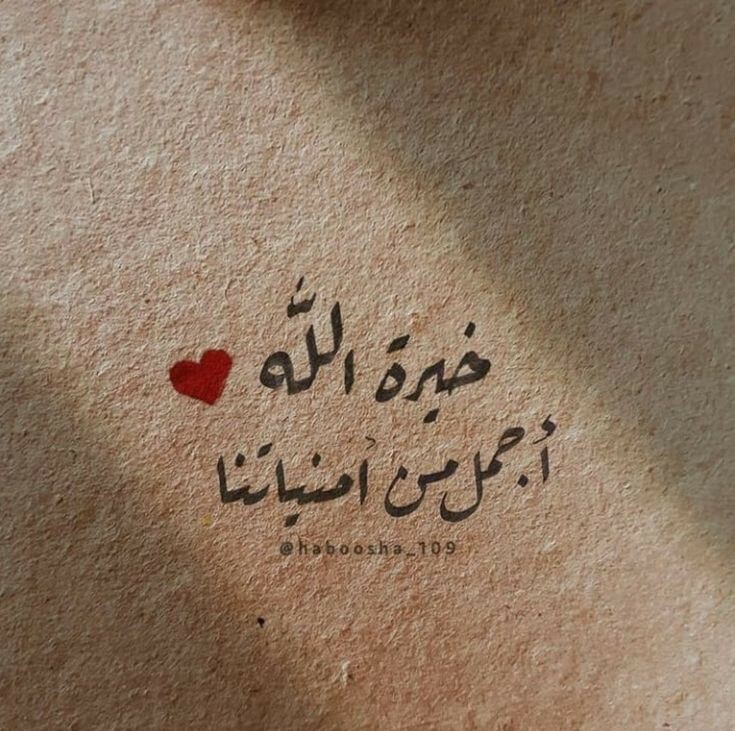 خيرة اللّٰه
أجمل من أمنياتنا
@haboosha_109